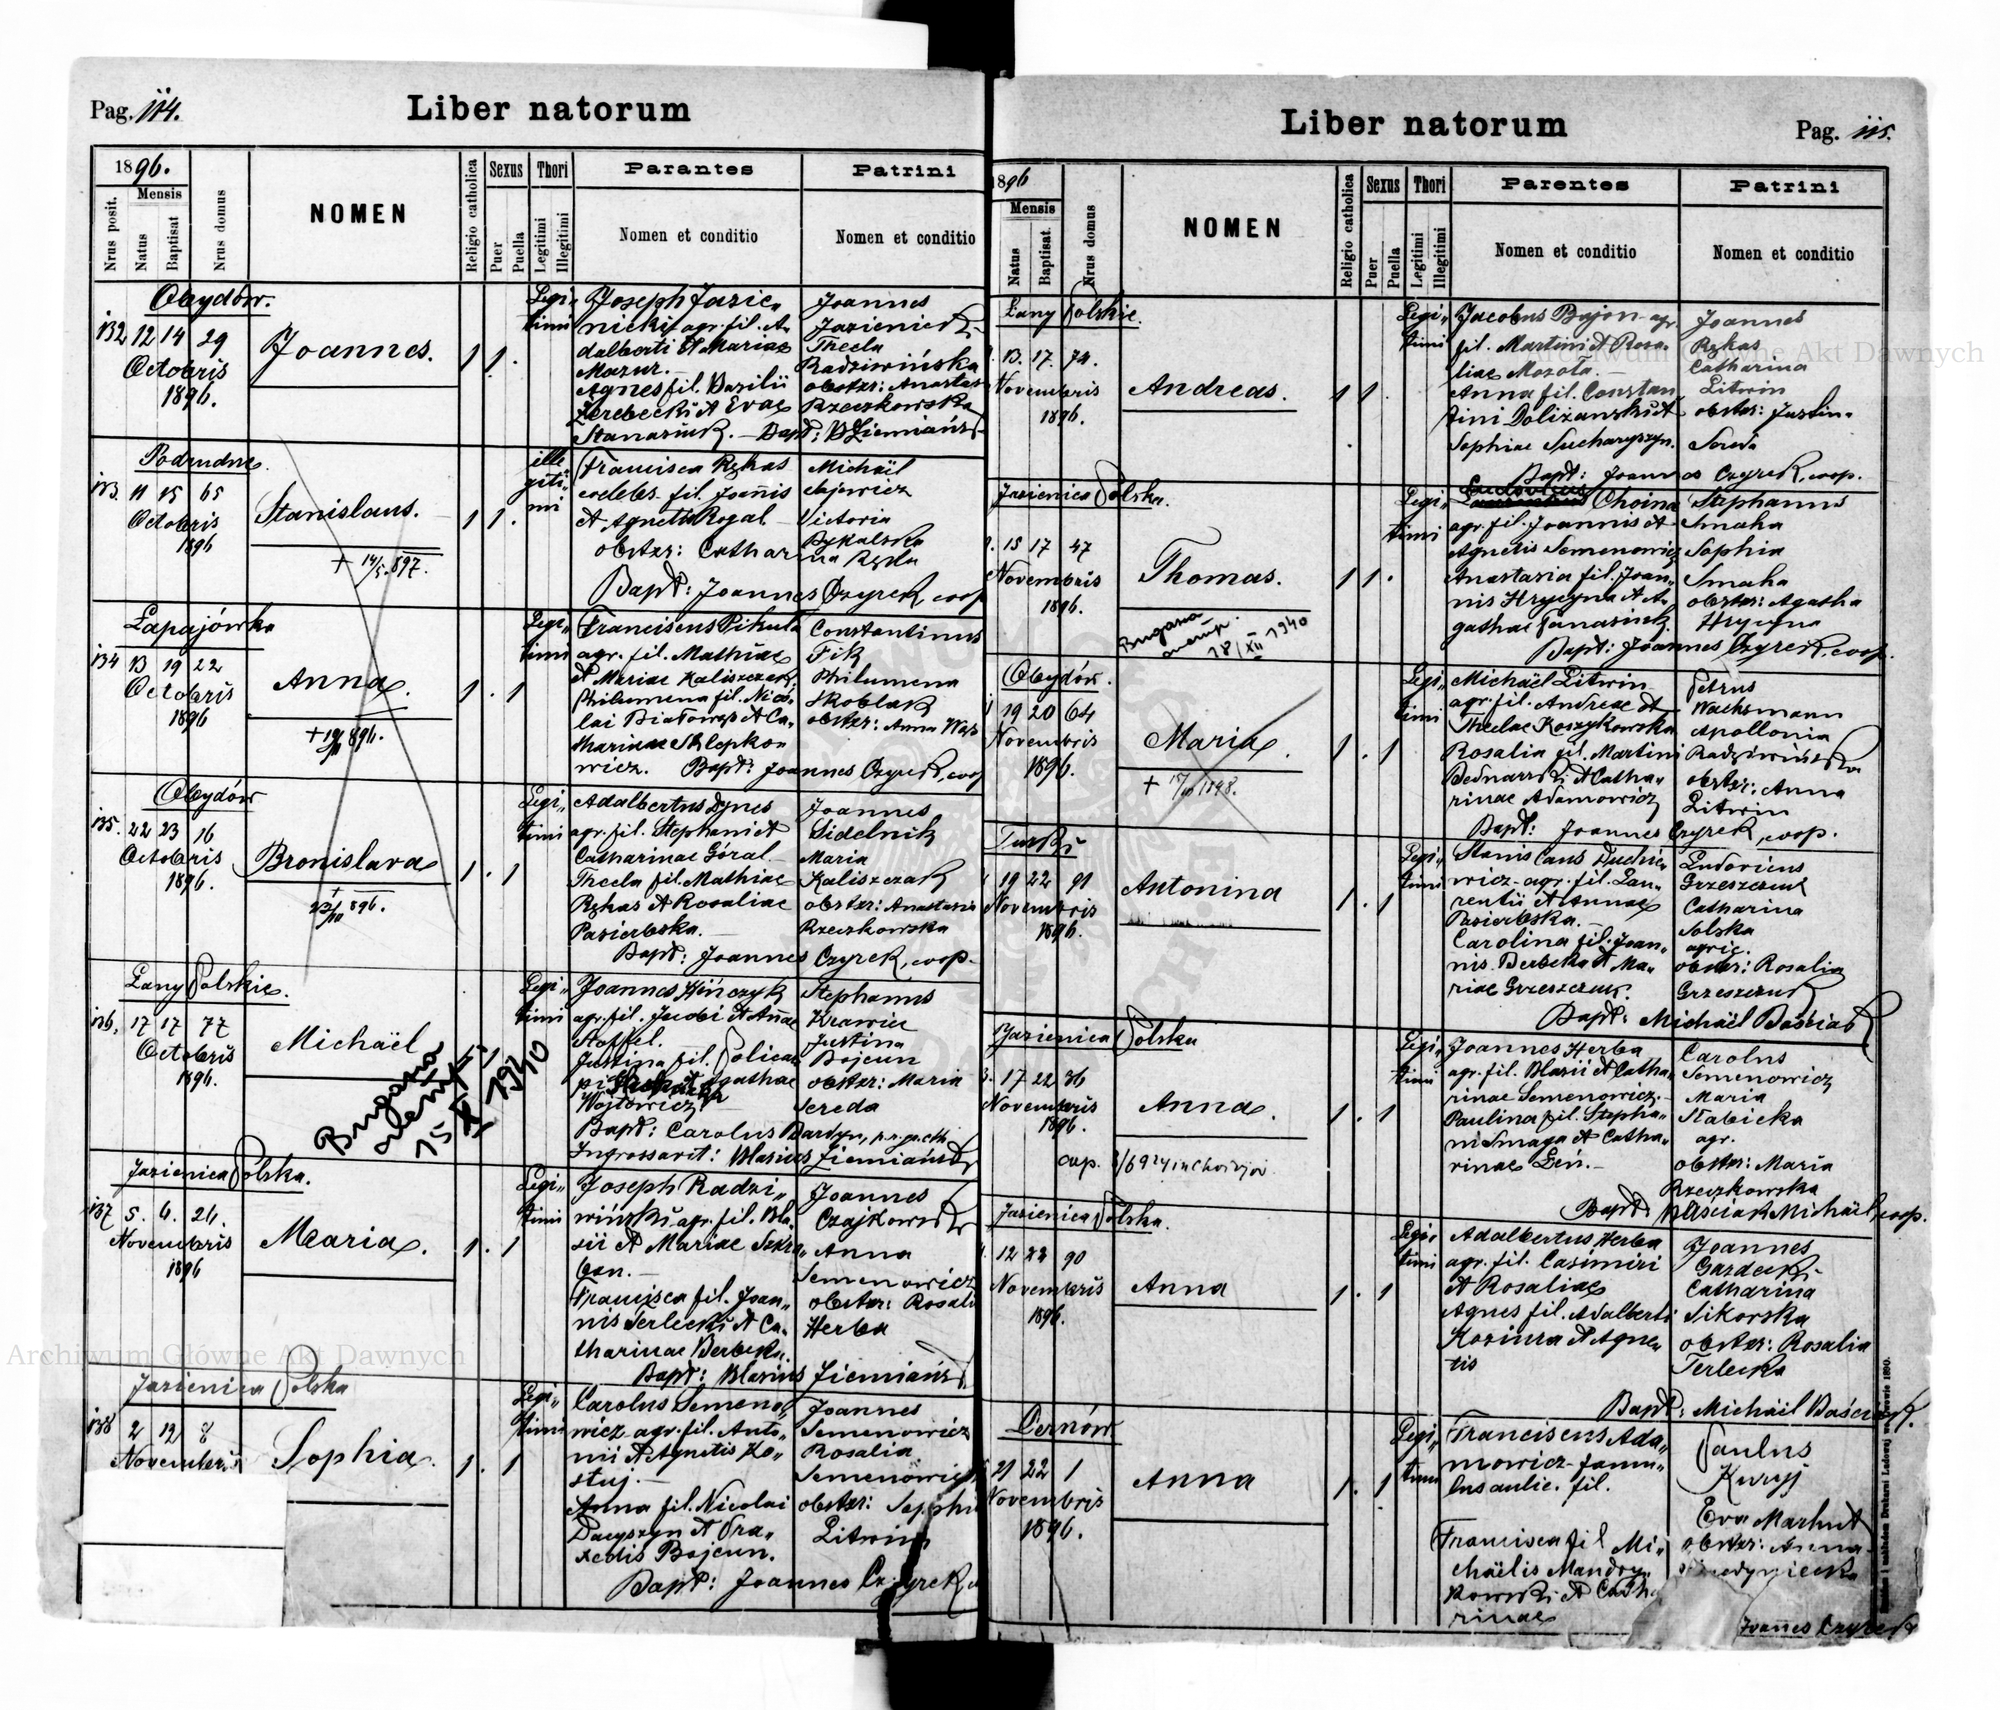 Pag. 114.
Liber natorum
1896.
Mensis
Nrus posit.
Natus
Baptisat
Nrus domus
NOMEN
Religio catholica
Sexus
Puer
Puella
Thori
Legitimi
Illegitimi
Parantes
Nomen et conditio
Patrini
Nomen et conditio
Obydów.
132 12 14 29
Octobris
1896.
Joannes.
1 1 .
Legi-
timi
Joseph Jazie-
nicki agr. fil. A-
dalberti et Mariae
Mazur.
Agnes fil. Basilii
Zerebecki et Evae
Stanasiuk. –
Joannes
Jazienicki
Thecla
Radziwińska
obstxr: Anastas
Rzeczkowska
Bapt: B Ziemiański
Podrudne
133. 11 15 65
Octobris
1896
Stanislaus.
+ 14/5. 897.
1 1 .
ille-
giti-
mi
Francisca Rękas
coelebs fil. Joañis
et Agnetis Rogal
Michaël
Victoria
Rykalska
obstxr: Catharina Ręda
Bapt: Joannes Czyrek, coop
Łapajówka
134 13 19 22
Octobris
1896
Anna.
1 . 1
Legi-
timi
Franciscus Pikuła
agr. fil. Mathiae
et Mariae Kaliszczak.
Philumena fil. Nico-
lai Białowąs et Ca-
tharinae Sklepko-
wicz.
Constantinus
Fik
Philumena
Skoblak
obstxr: Anna Wąs
Bapt: Joannes Czyrek, coop
Obydów
135. 22 23 16
Octobris
1896.
Bronislava
1 . 1
Legi-
timi
Adalbertus Dynes
agr. fil. Stephani et
Catharinae Góral
Thecla fil. Mathiae
Rękas et Rosaliae
Pasierbska.
Joannes
Sidelnik
Maria
Kaliszczak
obstxr: Anastasia
Rzeczkowska
Bapt: Joannes Czyrek, coop.
Łany Polskie.
136. 17 17 77
Octobris
1896.
Michaël
1940
Legi-
timi
Joannes Hińczyk
agr. fil. Jacobi et Añae
Stoffel.
Justina fil. Polica-
pi et Agathae
Wojtowicz
Stephanus
Krawiec
Justina
Bojcun
obstxr: Maria
Sereda
Bapt: Carolus Bardyn,
Ingrossavit: Blasius Ziemiański
Jazienica Polska.
137 5. 6. 24.
Novembris
1896
Maria.
1 . 1
Legi-
timi
Joseph Radzi-
wiński agr. fil. Bla-
sii et Mariae Szkra-
ban. –
Francisca fil. Joan-
nis Terlecki et Ca-
tharinae Berbeka.
Joannes
Czajkowski
Anna
Semenowicz
obstxr: Rosali
Herba
Bapt: Blasius Ziemiański
Jazienica Polska
138 2 12 8
Novembris
Sophia.
1 . 1
Legi-
timi
Carolus Semeno-
wicz agr. fil. Anto-
nii et Agnetis Ko-
stuj.
Anna fil. Nicolai
Daeyszyn et Pra-
xedis Bojcun.
Joannes
Semenowicz
Rosalia
Semenowicz
obstxr: Sophia
Litwin
Bapt: Joannes Czyrek,
Liber natorum
Pag. 115.
1896
Mensis
Natus
Baptisat.
Nrus domus
NOMEN
Religio catholica
Sexus
Puer
Puella
Thori
Legitimi
Illegitimi
Parentes
Nomen et conditio
Patrini
Nomen et conditio
Łany Polskie.
13. 17. 74.
Novembris
1896.
Andreas.
1 1 .
Legi-
timi
Jacobus Bojon agr
fil. Martini et Rosa-
liae Mozota. –
Anna fil. Constan-
tini Dolizanski et
Sophiae Sucharyszyn.
Joannes
Rękas
Catharina
Litwin
obstxr: Justin-
Sereda
Bapt: Joannes Czyrek, coop.
Jazienica Polska.
15 17 47
Novembris
1896.
Thomas.
18/XII 1940
1 1 .
Legi-
timi
Ludovicus Choina
agr. fil. Joannis et
Agnetis Semenowicz
Anastasia fil. Joan-
nis Hrycyna et A-
gathae Panasiuk.
Stephanus
Smaha
Sophia
Smaha
obstxr: Agatha
Hrycyna
Bapt: Joannes Czyrek, coop.
Obydów.
19 20 64
Novembris
1896.
Maria.
1 . 1
Legi-
timi
Michaël Litwin
agr. fil. Andreae et
Theclae Koszykowska
Rosalia fil. Martini
Bednarski et Catha-
rinae Adamowicz
Petrus
Wachsmann
Apollonia
Radziwińska
obstxr: Anna
Litwin
Bapt: Joannes Czyrek, coop.
Turki
19 22 91
Novembris
1896.
Antonina
1 . 1
Legi-
timi
Stanislaus Dudkie-
wicz agr. fil. Lau-
rentii et Annae
Pasierbska.
Carolina fil. Joan-
nis Berbeka et Ma-
riae Grzeszczuk.
Ludovicus
Grzeszczuk
Catharina
Solska
agric.
obstxr: Rosalia
Grzeszczuk
Bapt: Michaël Baściak
Jazienica Polska
17 22 36
Novembris
1896.
Anna.
cop.
1 . 1
Legi-
timi
Joannes Herba
agr. fil. Blasii et Catha-
rinae Semenowicz. –
Paulina fil. Stepha-
ni Smaga et Catha-
rinae Leń. –
Carolus
Semenowicz
Maria
Słabicka
agr.
obstxr: Maria
Rzeczkowska
Bapt Baściak Michaël, coop.
Jazienica Polska.
12 22 90
Novembris
1896.
Anna
1 . 1
Legi-
timi
Adalbertus Herba
agr. fil. Casimiri
et Rosaliae
Agnes fil. Adalberti
Koziura et Agne-
tis
Joannes
Gardecki
Catharina
Sikorska
obstxr: Rosalia
Terlecka
Bapt: Michaël Baściak.
Dernów
21 22 1
Novembris
1896.
Anna
1 . 1
Legi-
timi
Franciscus Ada-
mowicz famu-
lus aulic. fil.
Francisca fil Mi-
chaëlis Mandry-
kowski et Catha-
rinae
Paulus
Kuryj
Eva Marhut
obstxr: Anna
Joannes Czyrek
Archiwum Główne Akt Dawnych
Archiwum Główne Akt Dawnych